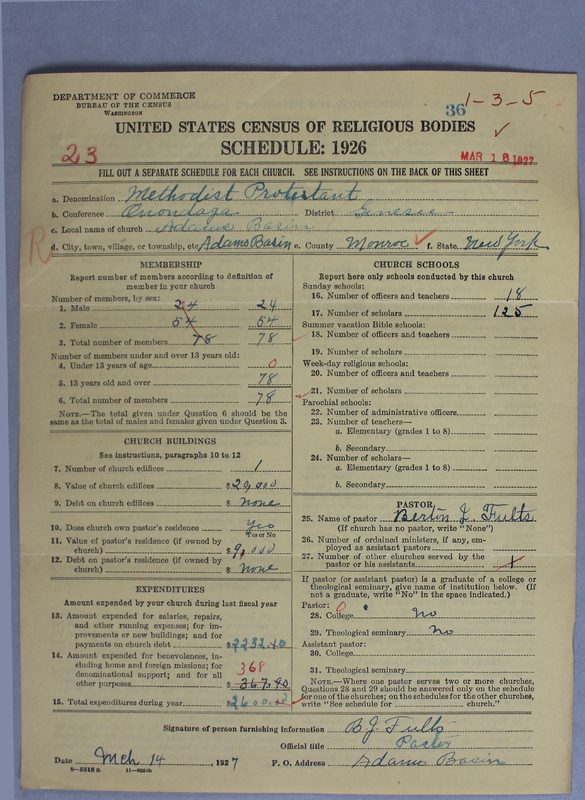 DEPARTMENT OF COMMERCE
BUREAU OF THE CENSUS
WASHINGTON
36 1-3-5
UNITED STATES CENSUS OF RELIGIOUS BODIES
SCHEDULE: 1926
23
MAR 16 1927
FILL OUT A SEPARATE SCHEDULE FOR EACH CHURCH. SEE INSTRUCTIONS ON THE BACK OF THIS SHEET
a. Denomination Methodist Protestant
b. Conference Onondaga District Genesee
c. Local name of church Adams Basin
R
d. City, town, village, or township, etc. Adams Basin e. County Monroe f. State New York
MEMBERSHIP
Report number of members according to definition of
member in your church
Number of members, by sex:
1. Male 24 24
2. Female 54 54
3. Total number of members 78 78
Number of members under and over 13 years old:
4. Under 13 years of age 0
5. 13 years old and over 78
6. Total number of members 78
NOTE.—The total given under Question 6 should be the
same as the total of males and females given under Question 3.
CHURCH BUILDINGS
See instructions, paragraphs 10 to 12
7. Number of church edifices 1
8. Value of church edifices $ 20,000
9. Debt on church edifices $ None
10. Does church own pastor's residence Yes
Yes or No
11. Value of pastor's residence (if owned by
church) $ 9,000
12. Debt on pastor's residence (if owned by
church) $ None
EXPENDITURES
Amount expended by your church during last fiscal year
13. Amount expended for salaries, repairs,
and other running expenses; for im-
provements or new buildings; and for
payments on church debt $ 2232.10
14. Amount expended for benevolences, in-
cluding home and foreign missions; for
denominational support; and for all 368
other purposes $ 367.90
15. Total expenditures during year $ 2600.00
CHURCH SCHOOLS
Report here only schools conducted by this church
Sunday schools:
16. Number of officers and teachers 18
17. Number of scholars 125
Summer vacation Bible schools:
18. Number of officers and teachers
19. Number of scholars
Week-day religious schools:
20. Number of officers and teachers
21. Number of scholars
Parochial schools:
22. Number of administrative officers
23. Number of teachers—
a. Elementary (grades 1 to 8)
b. Secondary
24. Number of scholars—
a. Elementary (grades 1 to 8)
b. Secondary
PASTOR
25. Name of pastor Berton J. Fults
(If church has no pastor, write "None")
26. Number of ordained ministers, if any, em-
ployed as assistant pastors
27. Number of other churches served by the
pastor or his assistants
If pastor (or assistant pastor) is a graduate of a college or
theological seminary, give name of institution below. (If
not a graduate, write "No" in the space indicated.)
Pastor: 0
28. College No
29. Theological seminary No
Assistant pastor:
30. College
31. Theological seminary
NOTE.—Where one pastor serves two or more churches,
Questions 28 and 29 should be answered only on the schedule
for one of the churches; on the schedules for the other churches,
write "See schedule for church."
Signature of person furnishing information B. J. Fults
Official title Pastor
Date Mch 14, 1927 P. O. Address Adams Basin
8—5518 a 11—9054b